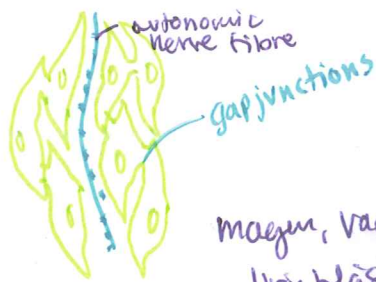 autonomic
nerve fibre
gap junctions
magen,